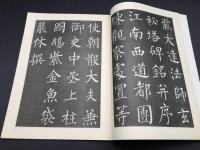 紫大達法師玄
秘塔碑銘并序
江南西道都團
練觀察處置等
使朝散大夫兼
御史中丞上柱
國賜紫金魚袋
裴休撰